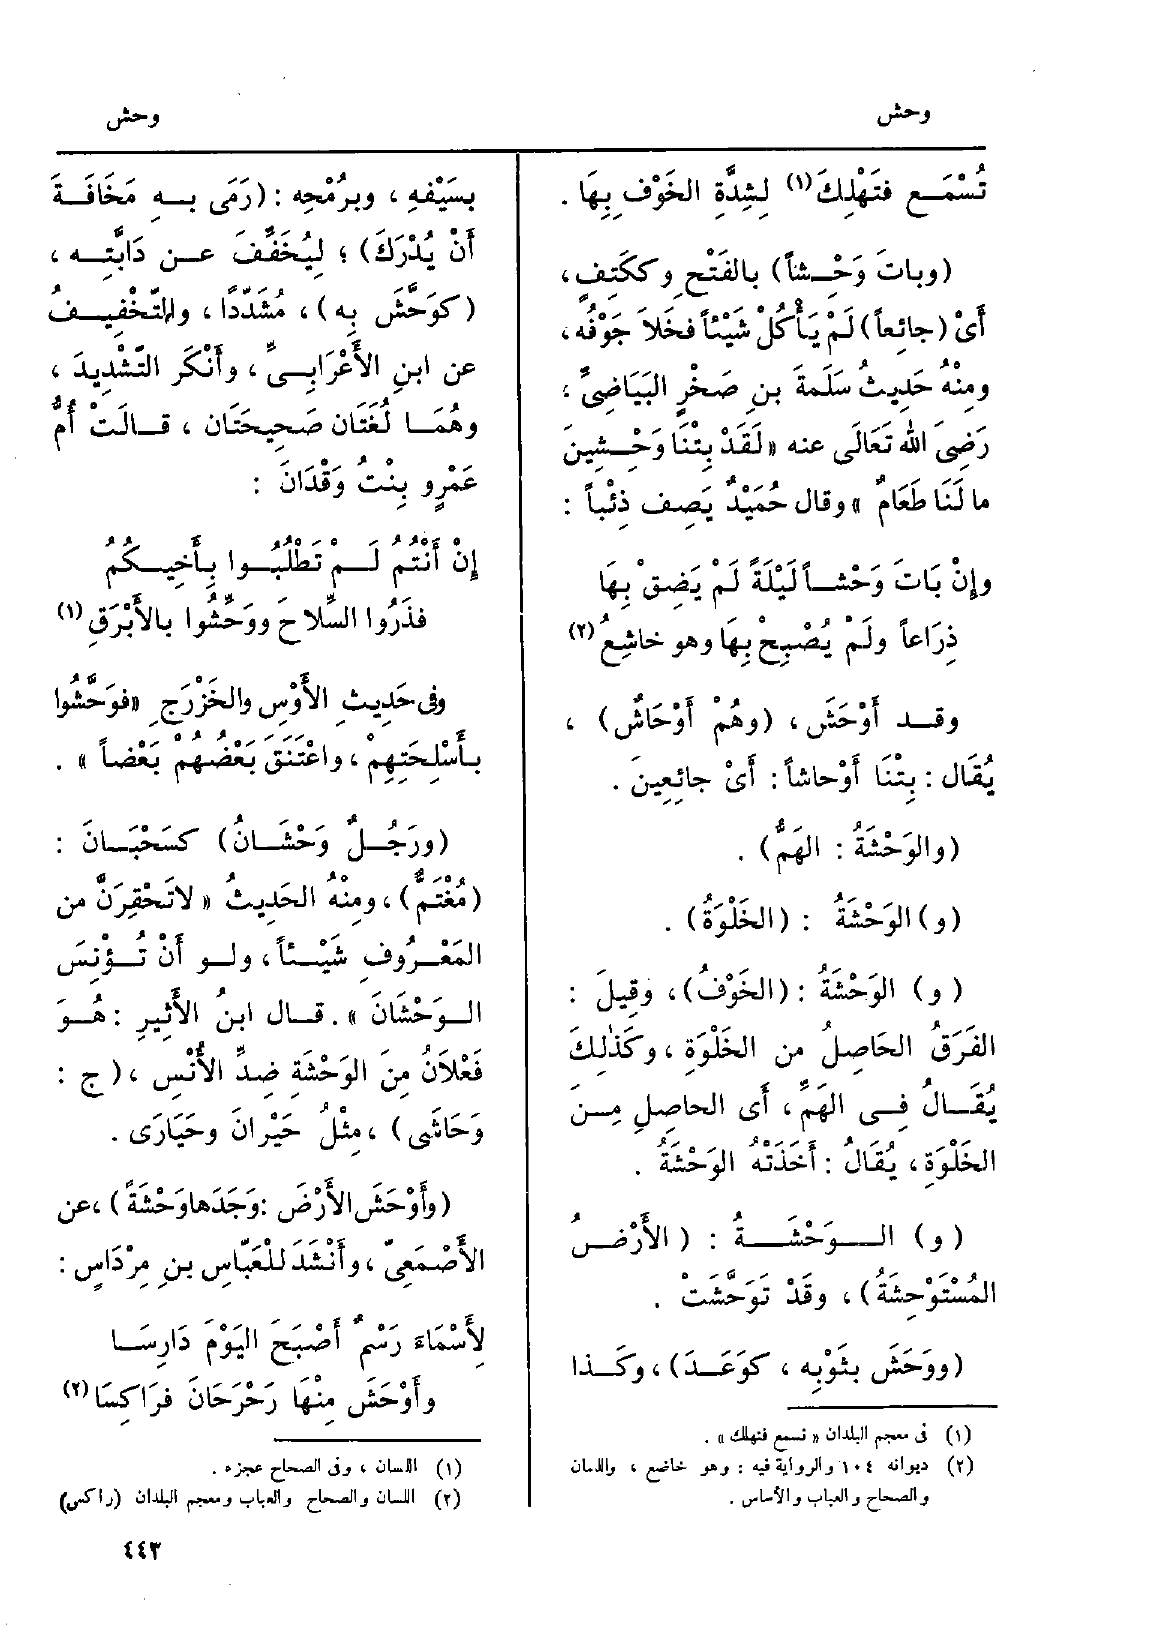 وحش
وحش
تُسْمَـع فتَهْلِكَ(١) لِشِدَّةِ الخَوْفِ بِهَا .
(وباتَ وَحْـشاً) بالفَتْحِ وككَتِفٍ ،
أَىْ (جائعاً) لَمْ يَأْكُلْ شَيْئاً فخَلاَ جَوْفُه ،
ومِنْهُ حَدِيثُ سَلَمَةَ بنِ صَخْرٍ البَيَاضِىِّ ،
رَضِىَ اللهُ تَعَالَى عنه «لَقَدْ بِتْنَا وَحْـشِينَ
ما لَنَا طَعَامٌ » وقال حُمَيْدٌ يَصِف ذِئْباً :
وإِنْ بَاتَ وَحْشـاً لَيْلَةً لَمْ يَضِقْ بِهَا
ذِرَاعاً ولَمْ يُصْبِحْ بِهَا وهو خاشِعُ(٢)
وقـد أَوْحَشَ ، (وهُمْ أَوْحَاشٌ) ،
يُقَال : بِتْنَا أَوْحاشاً : أَىْ جائِعِينَ .
(والوَحْشَةُ : الهَمُّ) .
(و) الوَحْشَةُ : (الخَلْوَةُ) .
(و) الوَحْشَةُ : (الخَوْفُ) ، وَقِيلَ :
الفَرَقُ الحَاصِلُ من الخَلْوَةِ ، وكَذٰلِكَ
يُقَـالُ فِـى الهَمِّ ، أَى الحاصِلِ مِـنَ
الخَلْوَةِ ، يُقَالُ : أَخَذَتْه الوَحْشَةُ .
(و) الــوَحْشَــةُ : (الأَرْضُ
المُسْتَوْحِشَةُ) ، وقَدْ تَوَحَّشَتْ .
(ووَحَشَ بثَوْبِه ، كوَعَـدَ) ، وكَـذا
(١) فى معجم البلدان « تسمع فتهلك » .
(٢) ديوانه ١٠٤ والرواية فيه : وهو خاضع ، واللسان
والصحاح والعباب والأساس .
بسَيْفِهِ ، وبرُمْحِه : (رَمَى بـهِ مَخَافَـةَ
أَنْ يُدْرَكَ) ؛ لِيُخَفِّفَ عـن دَابَّتِـه ،
(كوَحَّشَ بِه) ، مُشَدَّدًا ، والتَّخْفِيـفُ
عن ابنِ الأَعْرَابِـىِّ ، وأَنْكَر التَّشْدِيدَ ،
وهُمَـا لُغَتَان صَحِيحَتَان ، قـالَتْ أُمُّ
عَمْرٍو بِنْتُ وَقْدَانَ :
إِنْ أَنْتُمُ لَـمْ تَطْلُبُـوا بِأَخِيـكُمُ
فذَرُوا السِّلاَحَ ووَحِّشُوا بالأَبْرَقِ(١)
وفى حَدِيثِ الأَوْسِ والخَزْرَجِ «فوَحَّشُوا
بأَسْلِحَتِهِمْ ، واعْتَنَقَ بَعْضُهُمْ بَعْضاً » .
(ورَجُـلٌ وَحْشَـانُ) كسَحْبَـانَ :
(مُغْتَمٌّ) ، ومِنْهُ الحَدِيثُ « لاَتَحْقِرَنَّ من
المَعْـرُوفِ شَيْـئاً ، ولـو أَنْ تُـؤْنِسَ
الـوَحْشَانَ » . قـال ابنُ الأَثِيرِ : هُـوَ
فَعْلاَنُ مِنَ الوَحْشَةِ ضِدِّ الأُنْسِ ، (ج :
وَحَاشَى) ، مِثْلُ حَيْرانَ وحَيَارَى .
(وأَوْحَشَ الأَرْضَ : وَجَدَهاوَحْشَةً) ، عن
الأَصْمَعِىِّ ، وأَنْشَدَ للعَبَّاسِ بنِ مِرْدَاسٍ :
لِأَسْمَاءَ رَسْمٌ أَصْبَحَ اليَوْمَ دَارِسَـا
وأَوْحَشَ مِنْهَا رَحْرَحَانَ فرَاكِسَا(٢)
(١) اللسان ، وفى الصحاح عجزه .
(٢) اللسان والصحاح والعباب ومعجم البلدان (راكس)
٤٤٣